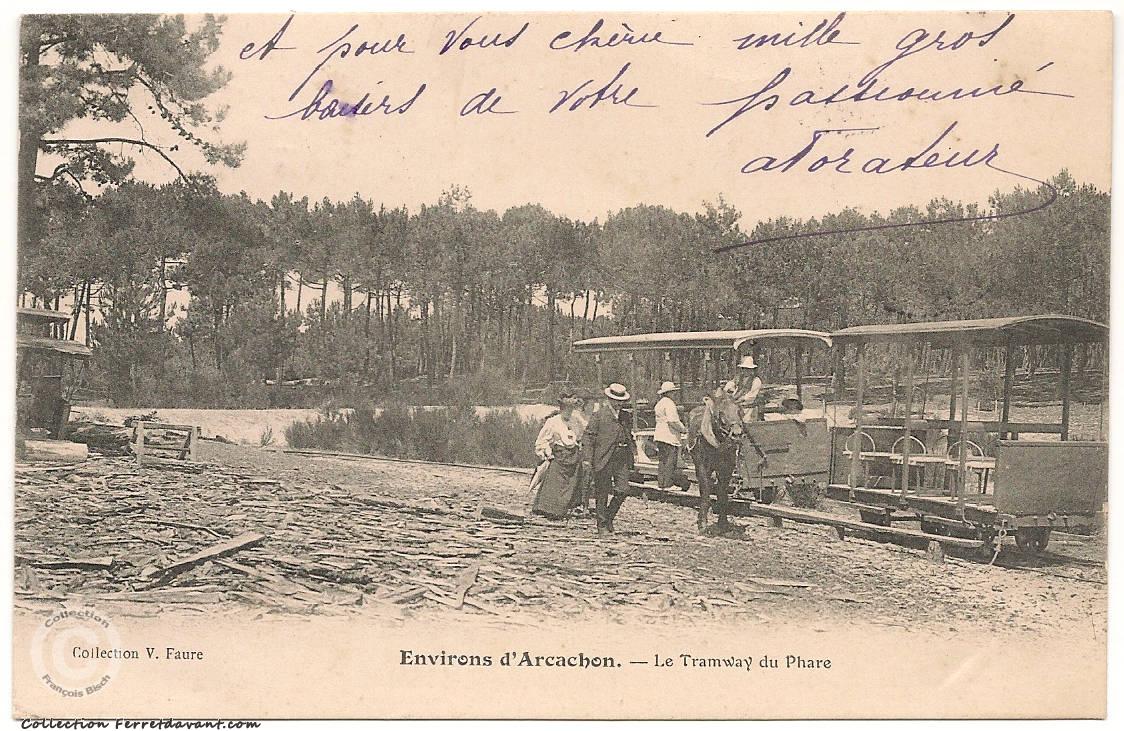 et pour Vous chérie mille gros
baisers de Votre passionné
adorateur
Collection V. Faure
Environs d'Arcachon. — Le Tramway du Phare
Collection
©
François Bisch
Collection Ferretdavant.com